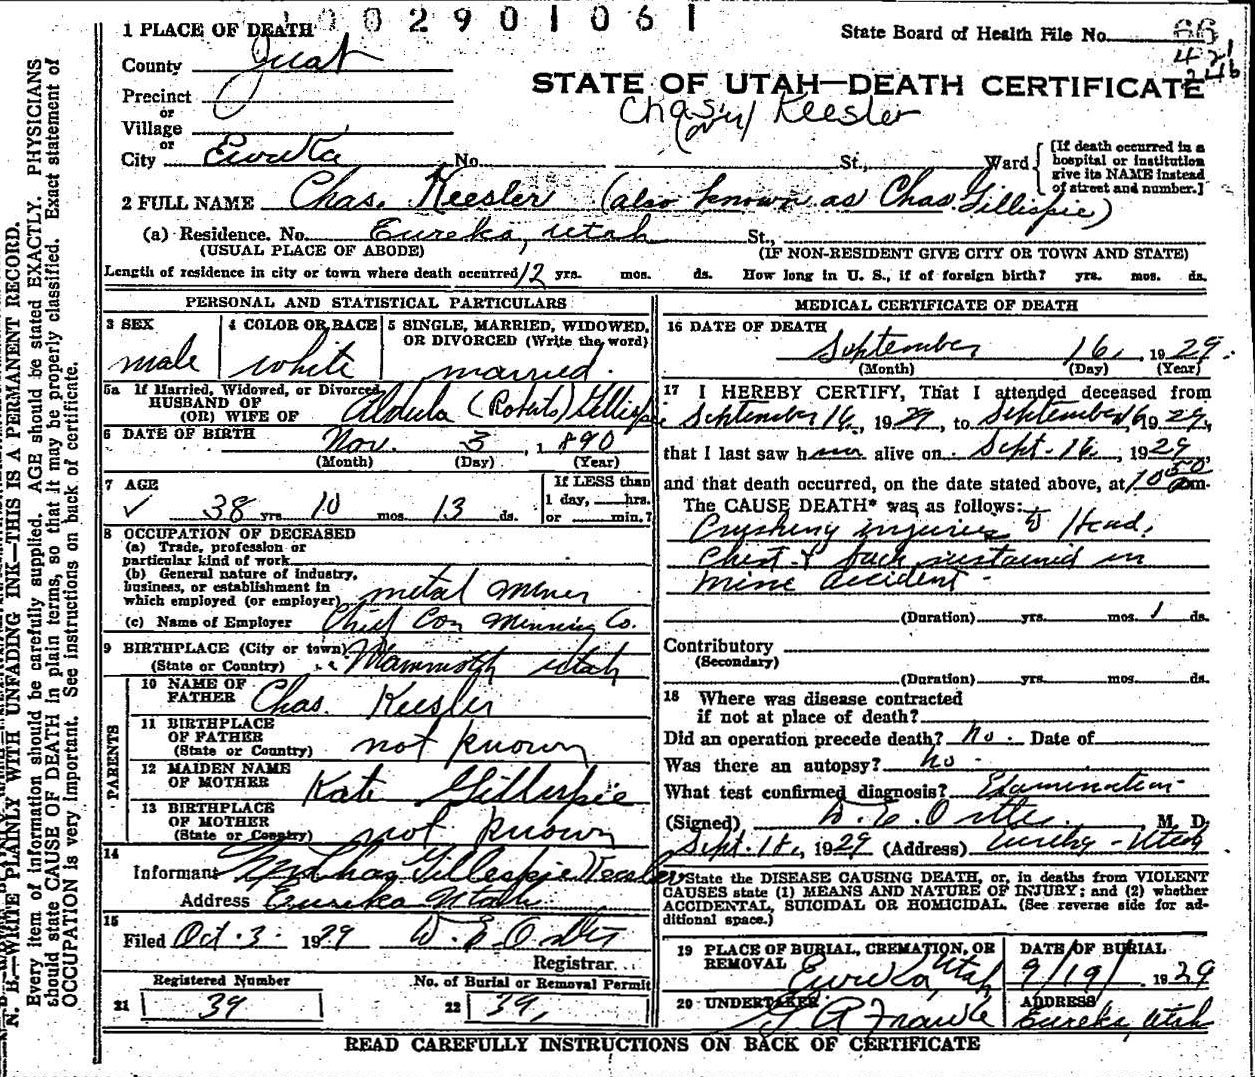 1002901061
1 PLACE OF DEATH
State Board of Health File No. 66
County Juab
STATE OF UTAH—DEATH CERTIFICATE
Precinct
or
Village
Chas. Keesler
or
City Eureka No. St., Ward
[If death occurred in a hospital or institution give its NAME instead of street and number.]
2 FULL NAME Chas. Keesler (also known as Chas Gillispie)
(a) Residence. No. Eureka, Utah St.,
(USUAL PLACE OF ABODE) (IF NON-RESIDENT GIVE CITY OR TOWN AND STATE)
Length of residence in city or town where death occurred 12 yrs. mos. ds. How long in U. S., if of foreign birth? yrs. mos. ds.
PERSONAL AND STATISTICAL PARTICULARS
3 SEX
male
4 COLOR OR RACE
white
5 SINGLE, MARRIED, WIDOWED, OR DIVORCED (Write the word)
married.
5a If Married, Widowed, or Divorced
HUSBAND OF
(OR) WIFE OF (Roberts) Gillispie
6 DATE OF BIRTH Nov. 3, 1890
(Month) (Day) (Year)
7 AGE
38 yrs 10 mos. 13 ds.
If LESS than
1 day, hrs.
or min.?
8 OCCUPATION OF DECEASED
(a) Trade, profession or
particular kind of work
(b) General nature of industry,
business, or establishment in
which employed (or employer) metal miner
(c) Name of Employer Chief Con Minning Co.
9 BIRTHPLACE (City or town)
(State or Country) Mammoth Utah
PARENTS
10 NAME OF
FATHER Chas. Keesler
11 BIRTHPLACE
OF FATHER
(State or Country) not known
12 MAIDEN NAME
OF MOTHER Kate Gillispie
13 BIRTHPLACE
OF MOTHER
(State or Country) not known
14
Informant Mrs Chas Gillespie Keesler
Address Eureka Utah
15
Filed Oct. 3. 1929 W. E. O
Registrar
Registered Number
21 39
No. of Burial or Removal Permit
22 39,
MEDICAL CERTIFICATE OF DEATH
16 DATE OF DEATH
September 16, 1929.
(Month) (Day) (Year)
17 I HEREBY CERTIFY, That I attended deceased from
September 16, 1929, to September 16 1929,
that I last saw him alive on Sept. 16, 1929
and that death occurred, on the date stated above, at 10 50 m.
The CAUSE DEATH* was as follows:
Crushing injuries to Head,
Chest & back sustained in
mine accident -
(Duration) yrs. mos. 1 ds.
Contributory
(Secondary)
(Duration) yrs. mos. ds.
18 Where was disease contracted
if not at place of death?
Did an operation precede death? No. Date of
Was there an autopsy? No -
What test confirmed diagnosis? Examination -
(Signed) W. E. O M. D.
Sept. 18, 1929 (Address) Eureka - Utah
*State the DISEASE CAUSING DEATH, or, in deaths from VIOLENT
CAUSES state (1) MEANS AND NATURE OF INJURY; and (2) whether
ACCIDENTAL, SUICIDAL OR HOMICIDAL. (See reverse side for ad-
ditional space.)
19 PLACE OF BURIAL, CREMATION, OR
REMOVAL Eureka, Utah
DATE OF BURIAL
9/19/ 1929
20 UNDERTAKER
ADDRESS
Eureka, Utah
READ CAREFULLY INSTRUCTIONS ON BACK OF CERTIFICATE
N. B.—WRITE PLAINLY WITH UNFADING INK—THIS IS A PERMANENT RECORD.
Every item of information should be carefully supplied. AGE should be stated EXACTLY. PHYSICIANS
should state CAUSE OF DEATH in plain terms, so that it may be properly classified. Exact statement of
OCCUPATION is very important. See instructions on back of certificate.